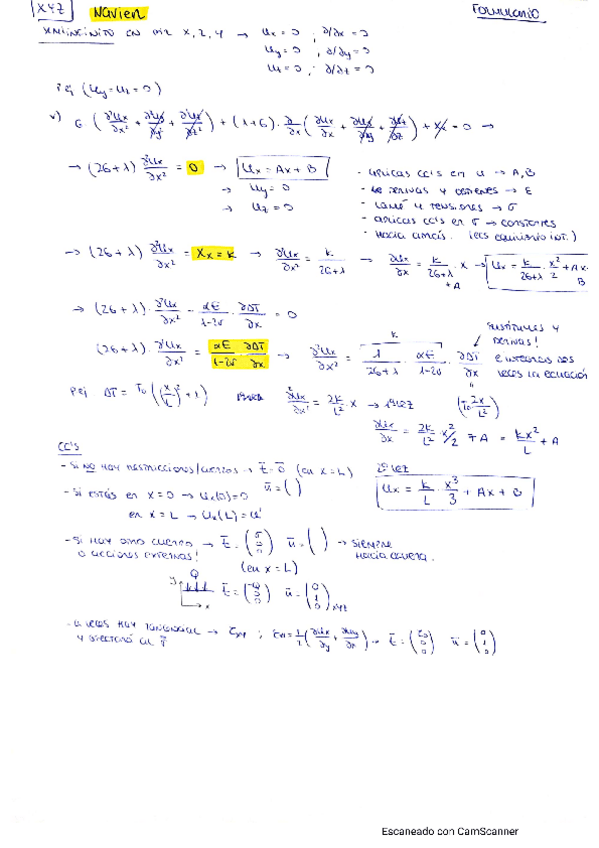 XYZ Navier Formulario
infinito en dir x, z, y → ux = 0 ; ∂/∂x = 0
uy = 0 ; ∂/∂y = 0
∂/∂z = 0
Pej (uy = uz = 0)
G (∂²ux/∂x² + ∂²ux/∂y² + ∂²ux/∂z²) + (λ+G) · ∂/∂x (∂ux/∂x + ∂uy/∂y + ∂uz/∂z) + Xx = 0 →
→ (2G+λ) ∂²ux/∂x² = 0 → ux = Ax + B
→ uy = 0
→ uz = 0
- aplicas cc's en u → A, B
- derivas y obtienes → ε
- Lamé y tensiones → σ
- aplicas cc's en σ → constantes
- hacia atrás. (ecs equilibrio int.)
→ (2G+λ) · ∂²ux/∂x² = Xx = k → ∂²ux/∂x² = k/(2G+λ) → ∂ux/∂x = k/(2G+λ) · x + A → ux = k/(2G+λ) · x²/2 + Ax + B
→ (2G+λ) · ∂²ux/∂x² - αE/(1-2ν) · ∂ΔT/∂x = 0
(2G+λ) · ∂²ux/∂x² = αE/(1-2ν) ∂ΔT/∂x → ∂²ux/∂x² = 1/(2G+λ) · αE/(1-2ν) · ∂ΔT/∂x
k
sustituyes y
derivas!
e integras dos
veces la ecuación
Pej ΔT = T0 ((x/L)² + 1) ∂²ux/∂x² = 2k/L² · x → 1ª vez (T0 2x/L²)
∂ux/∂x = 2k/L² · x²/2 + A = kx²/L + A
CC's
- Si no hay restricciones/cuerpos → t̄ = 0̄ (en x = L)
ū = ( )
2ª vez
ux = k/L · x³/3 + Ax + B
- Si estás en x = 0 → ux(0) = 0
en x = L → ux(L) = u
- Si hay otro cuerpo → t̄ = ū = ( ) → siempre
o acciones externas! hacia afuera.
(en x = L)
Q
y
x
t̄ = (-Q 0 0) ū = (0 1 0) xyz
- a veces hay tangencial → τxy ; = 1/2 (∂ux/∂y + ∂uy/∂x) → t̄ = (τ0 0 0) ū = (0 1 0)
y afectará al t̄
Escaneado con CamScanner